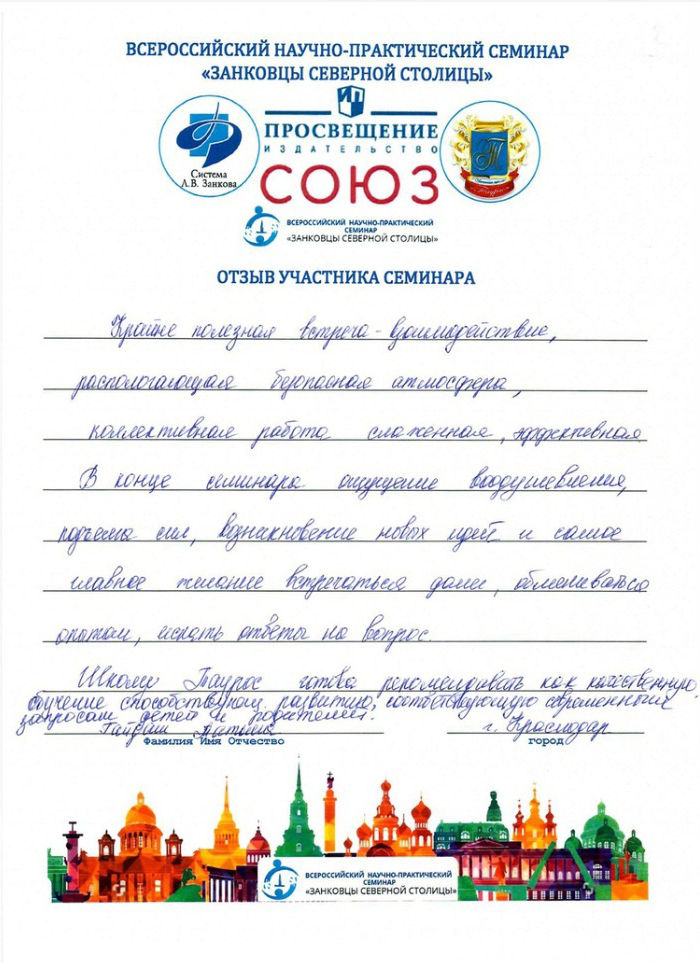 ВСЕРОССИЙСКИЙ НАУЧНО-ПРАКТИЧЕСКИЙ СЕМИНАР
«ЗАНКОВЦЫ СЕВЕРНОЙ СТОЛИЦЫ»
ПРОСВЕЩЕНИЕ
ИЗДАТЕЛЬСТВО
СОЮЗ
Система
Л.В. Занкова
ВСЕРОССИЙСКИЙ НАУЧНО-ПРАКТИЧЕСКИЙ
СЕМИНАР
«ЗАНКОВЦЫ СЕВЕРНОЙ СТОЛИЦЫ»
ОТЗЫВ УЧАСТНИКА СЕМИНАРА
Крайне полезная встреча - взаимодействие,
распологающая безопасная атмосфера,
коллективная работа слаженная, эффективная
В конце семинара ощущение воодушевления,
подъема сил, возникновение новых идей и самое
главное желание встречаться далее, обмениваться
опытом, искать ответы на вопрос.
Школу Таурас готова рекомендовать как качественную,
обучение способствующ. развитию, соответствующую современным
запросам детей и родителей.
г. Краснодар
Фамилия Имя Отчество город
ВСЕРОССИЙСКИЙ НАУЧНО-ПРАКТИЧЕСКИЙ
СЕМИНАР
«ЗАНКОВЦЫ СЕВЕРНОЙ СТОЛИЦЫ»